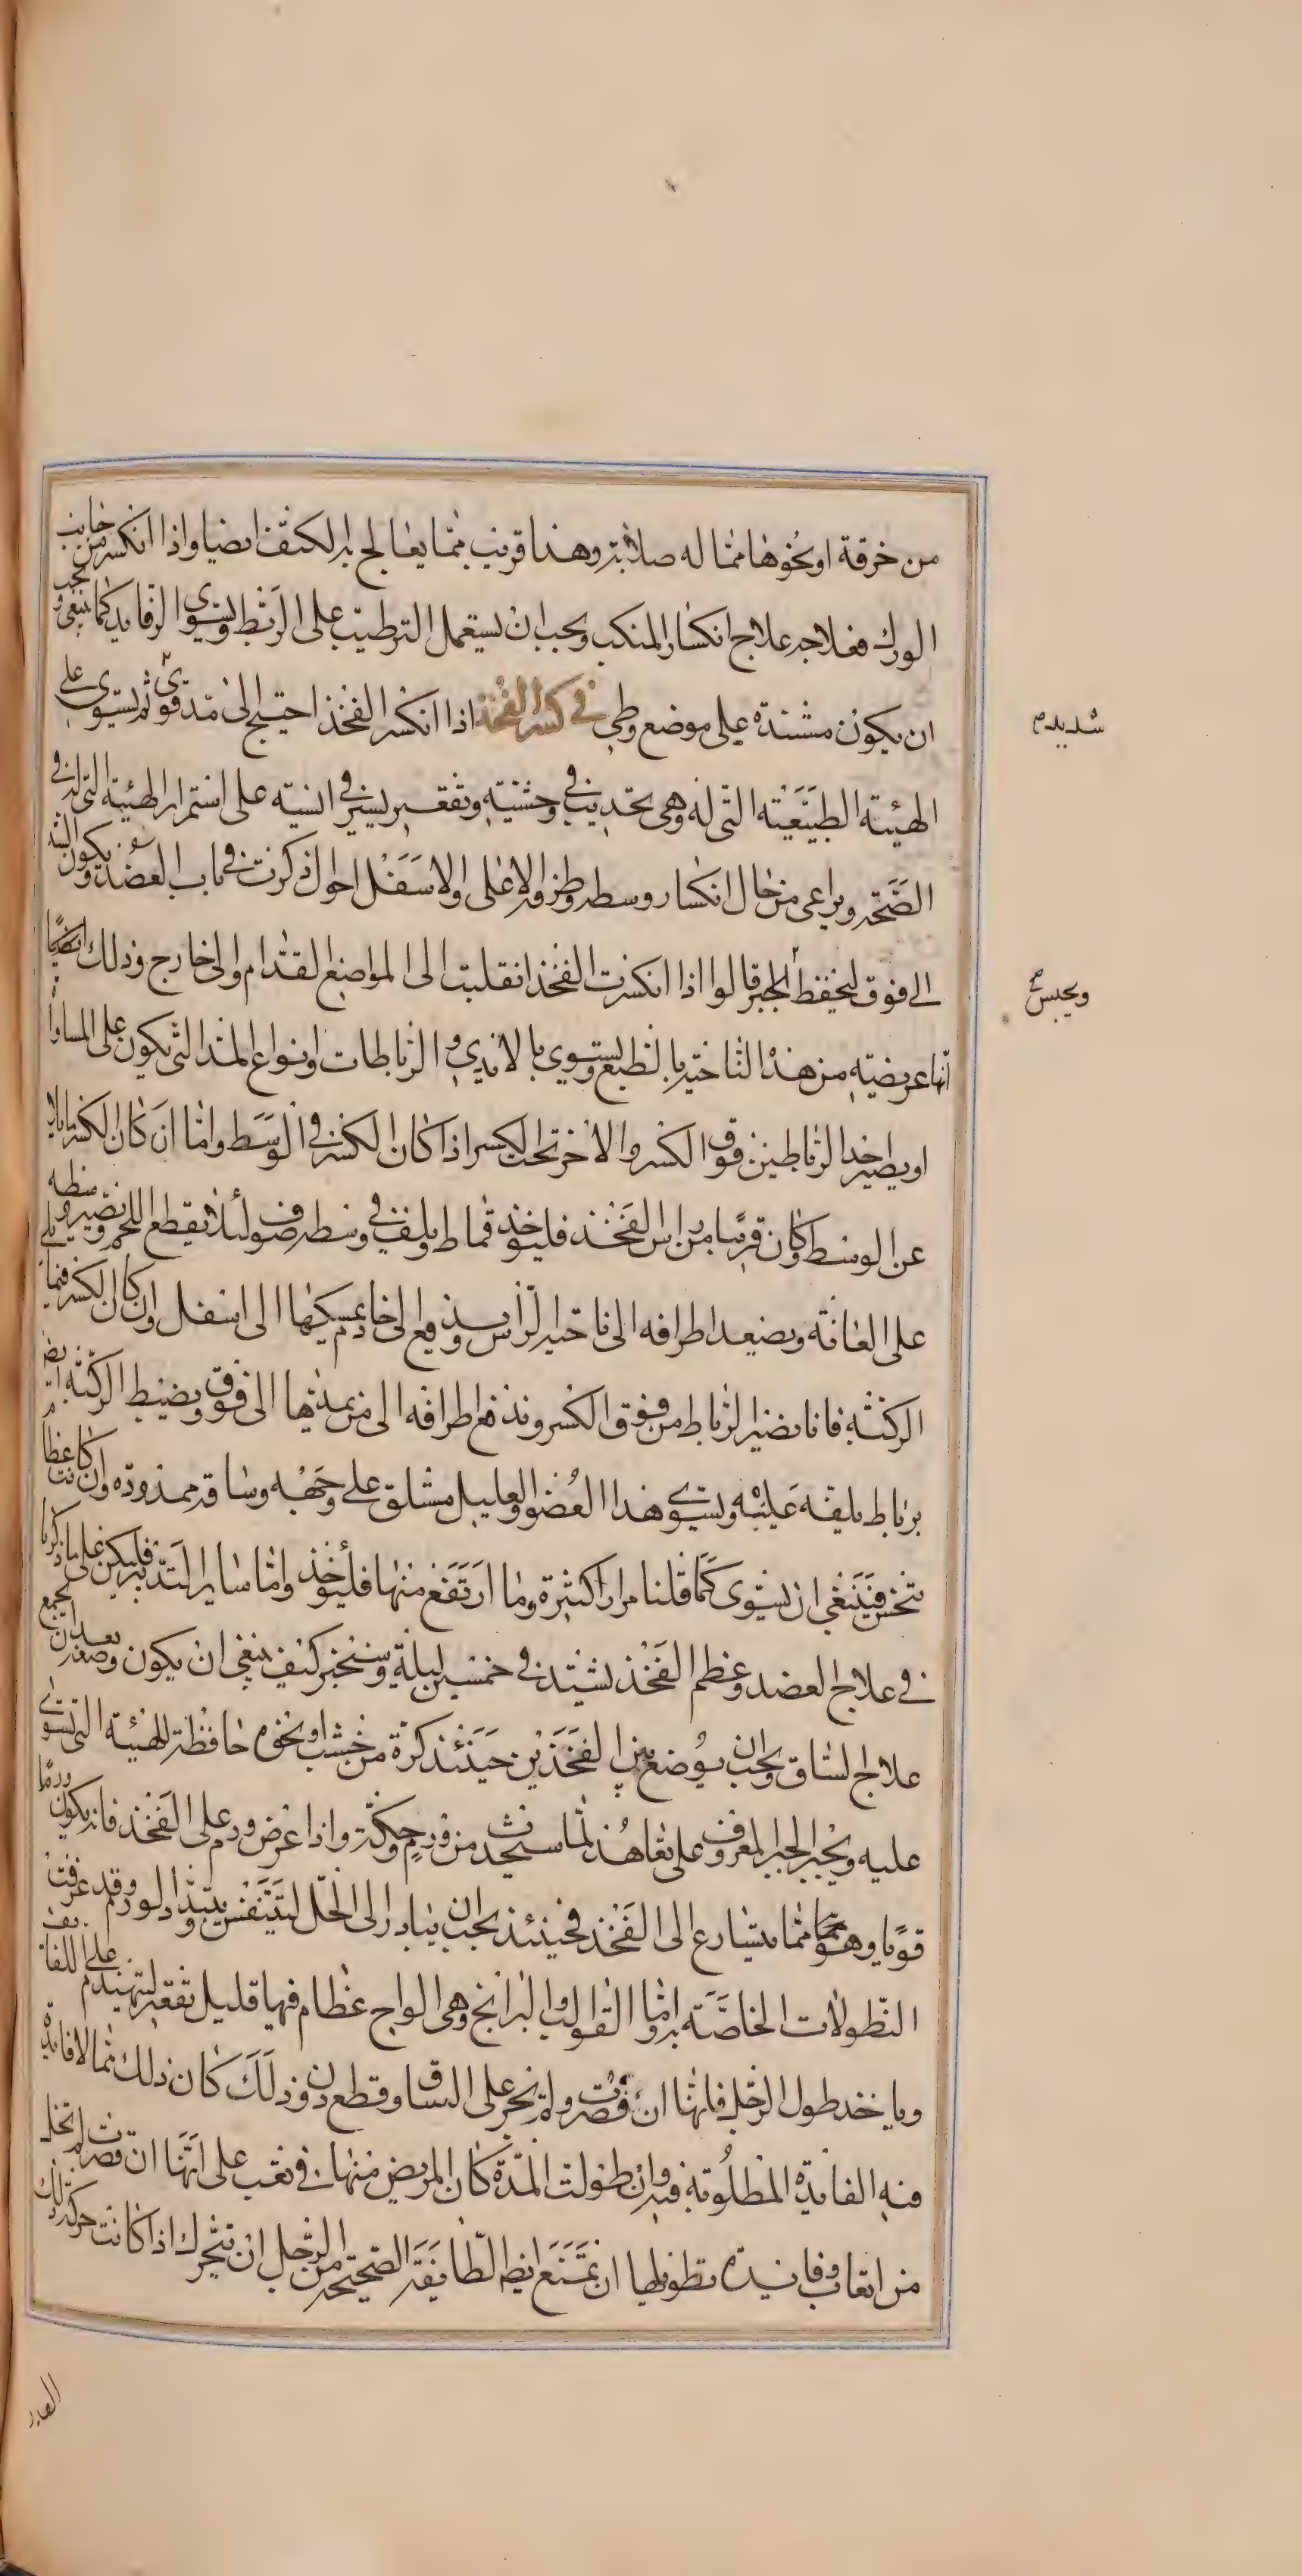 من خرقة او نحوها مما له صلابة وهذا قريب مما يعالج به الكتف ايضا واذا انكسر من جانب
الورك فعلاجه علاج انكسار المنكب ويجب ان يستعمل الترطيب على الربط ويسوى الرفايد كما ينبغي ويجب
ان يكون مشتدة على موضع وطي في كسر الفخذ اذا انكسر الفخذ احتيج الى مد قوى ثم يسوى على
شديد
الهيئة الطبيعية التى له وهى تحديب في وحشيه وتقعير يسير في انسيه على استمرار الهيئة التى له في
الصحة ويراعى من حال انكسار وسطه وطرفه الاعلى والاسفل احوال ذكرت في باب العضد ويكون الشد
الى فوق ليحفظ الجبر قالوا اذا انكسرت الفخذ انقلبت الى المواضع القدام والى خارج وذلك ايضا
ويحبس
انها عريضة من هذه الناحية بالطبع ويستوي بالايدي و الرباطات وانواع المد التى يكون على المساواة
او يصير احد الرباطين فوق الكسر والاخر تحت الكسر اذا كان الكسر في الوسط واما ان كان الكسر مايلا
عن الوسط وكان قريبا من راس الفخذ فليؤخذ قماط ويلف في وسطه صوف لئلا يقطع اللحم ويصير وسطه
على العانة ويصعد اطرافه الى ناحية الراس ويدفع الى خادم يمسكها الى اسفل وان كان الكسر فيما يلي
الركبة فانا نصير الرباط من فوق الكسر وندفع اطرافه الى من يمدها الى فوق ويضبط الركبة ايضا
برباط يلفه عليه ويسوى هذا العضو والعليل مستلق على وجهه وساقه ممدودة وان كانت عظام
تنخس فينبغي ان يسوى كما قلنا مرارا كثيرة وما ارتفع منها فليؤخذ واما ساير التدبير فليكن على ما ذكرنا
في علاج العضد وعظم الفخذ يشتد في خمسين ليلة وسنخبر كيف ينبغي ان يكون وضعه بعد ان يجمع
علاج الساق ويجب ان يوضع بين الفخذين حينئذ كرة من خشب او نحوه حافظة للهيئة التى تسوى
عليه ويجبر الجبر المعروف على تعاهد لما سيحدث من ورم وحكة واذا عرض ورم على الفخذ فانه يكون ورما
قويا وهو مما يتسارع الى الفخذ فحينئذ يجب ان يبادر الى الحل ليتنفس ويتبدد الورم وقد عرفت
النطولات الخاصة به واما القوالب والبرانج وهى الواح عظام فيها قليل تقعير ليتهندم على اللفايف
وياخذ طول الرجل فانها ان قصرت ولم تجر على الساق وقطع دون ذلك كان ذلك مما لا فايدة
فيه الفايدة المطلوبة فيه وان طولت المدة كان المريض منها في تعب على انها ان قصرت لم تخل
من اتعاب وفايدة تطويلها ان تمنع ايضا الطايفة الصحيحة من الرجل ان تتحرك اذا كانت حركة تلك